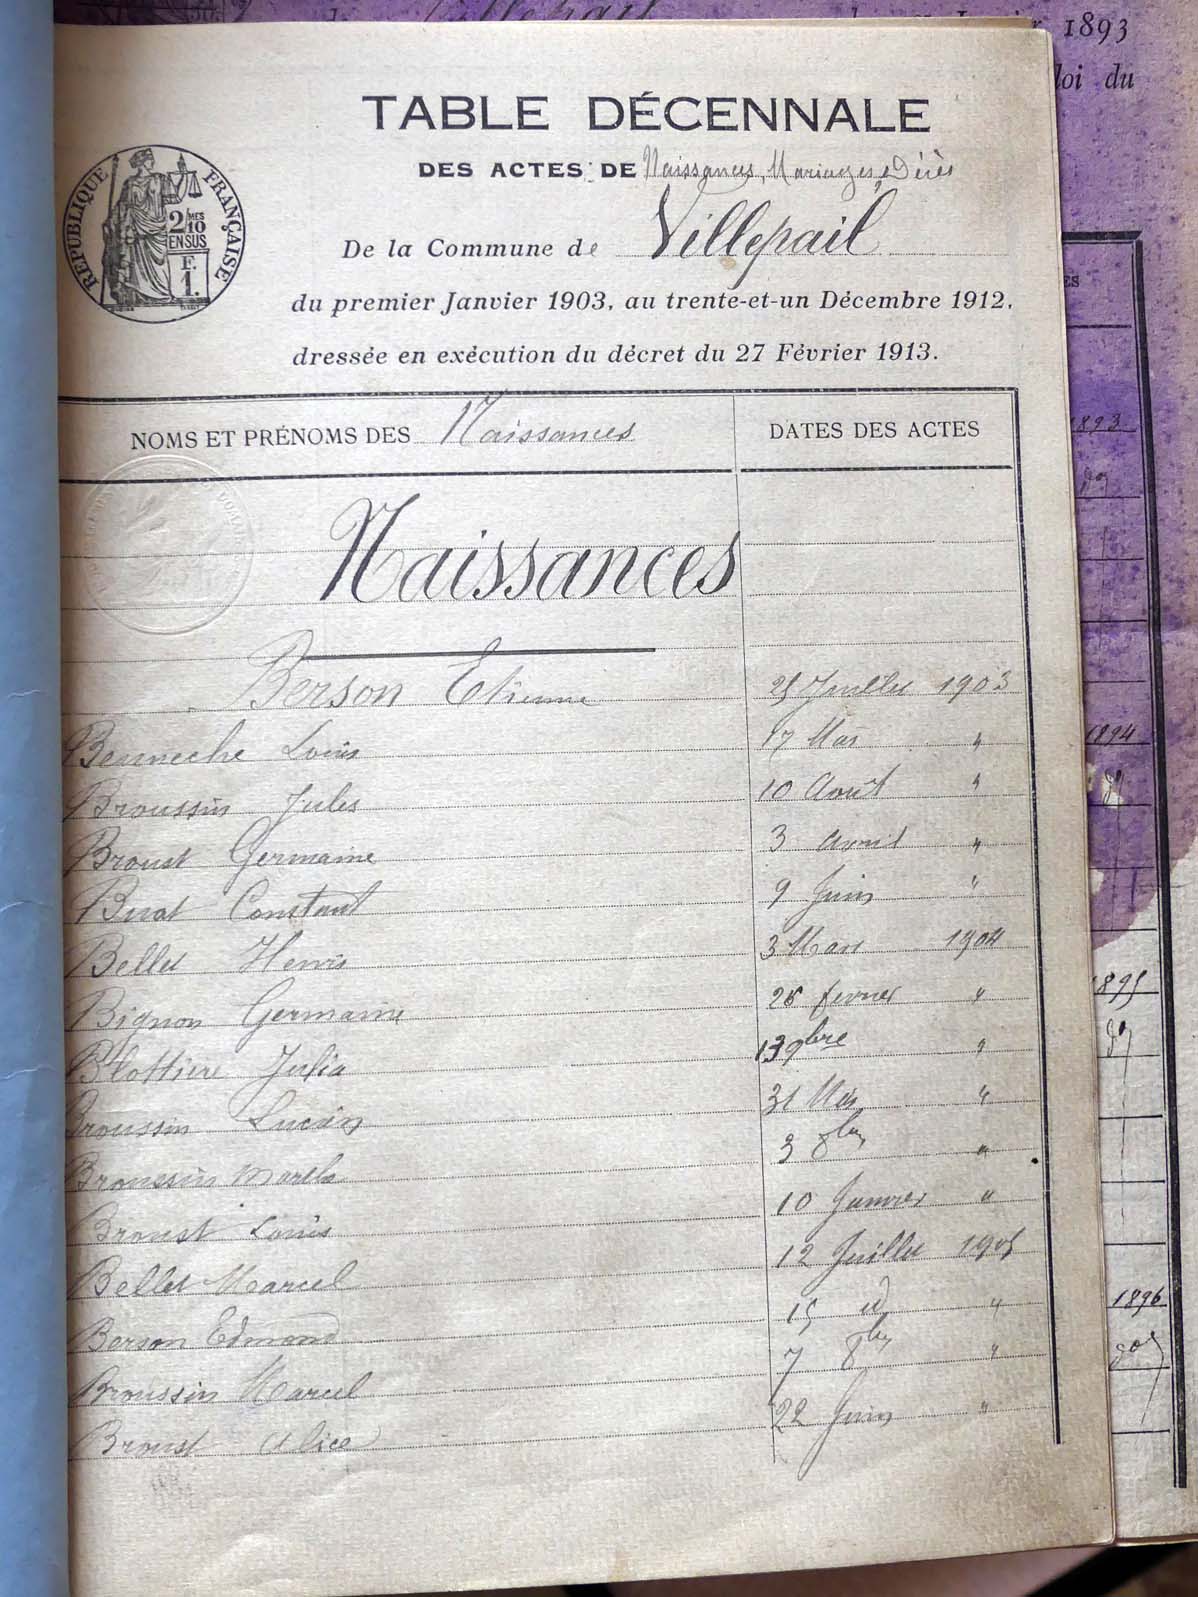 1893
loi du
TABLE DÉCENNALE
DES ACTES DE Naissances, Mariages, Décès
De la Commune de Villepail
du premier Janvier 1903, au trente-et-un Décembre 1912,
dressée en exécution du décret du 27 Février 1913.
RÉPUBLIQUE FRANÇAISE
2/10 MES
EN SUS
F.
1.
NOMS ET PRÉNOMS DES Naissances DATES DES ACTES
Naissances
Berson Etienne 25 Juillet 1903
Louis 17 Mai "
Broussin Jules 10 Août "
Broust Germaine 3 Avril "
Buat Constant 9 Juin "
Bellet Henri 3 Mars 1904
Bignon Germaine 26 fevrier "
Blottiere Julia 13 9bre "
Broussin Lucien 31 Mai "
Broussin 3 8bre "
Broust Louis 10 Janvier "
Bellet Marcel 12 Juillet 1905
Berson Edmond 15 id "
Broussin Marcel 7 8bre "
Broust Alice 22 Juin "
1893
1894
1895
1896